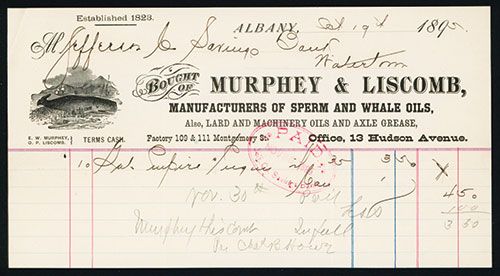 Established 1823.
ALBANY, Oct 19th 1895
M Jefferson Co Savings Bank
Watertown
BOUGHT OF MURPHEY & LISCOMB,
MANUFACTURERS OF SPERM AND WHALE OILS,
Also, LARD AND MACHINERY OILS AND AXLE GREASE,
E. W. MURPHEY,
O. P. LISCOMB.
TERMS CASH.
Factory 109 & 111 Montgomery St.
Office, 13 Hudson Avenue.
PAID
10 Gal Empire Engine 35 3 50
Can 1
4 50
Nov. 30th Paid
1 00
Murphey Liscomb In full
3 50
Per Chas R